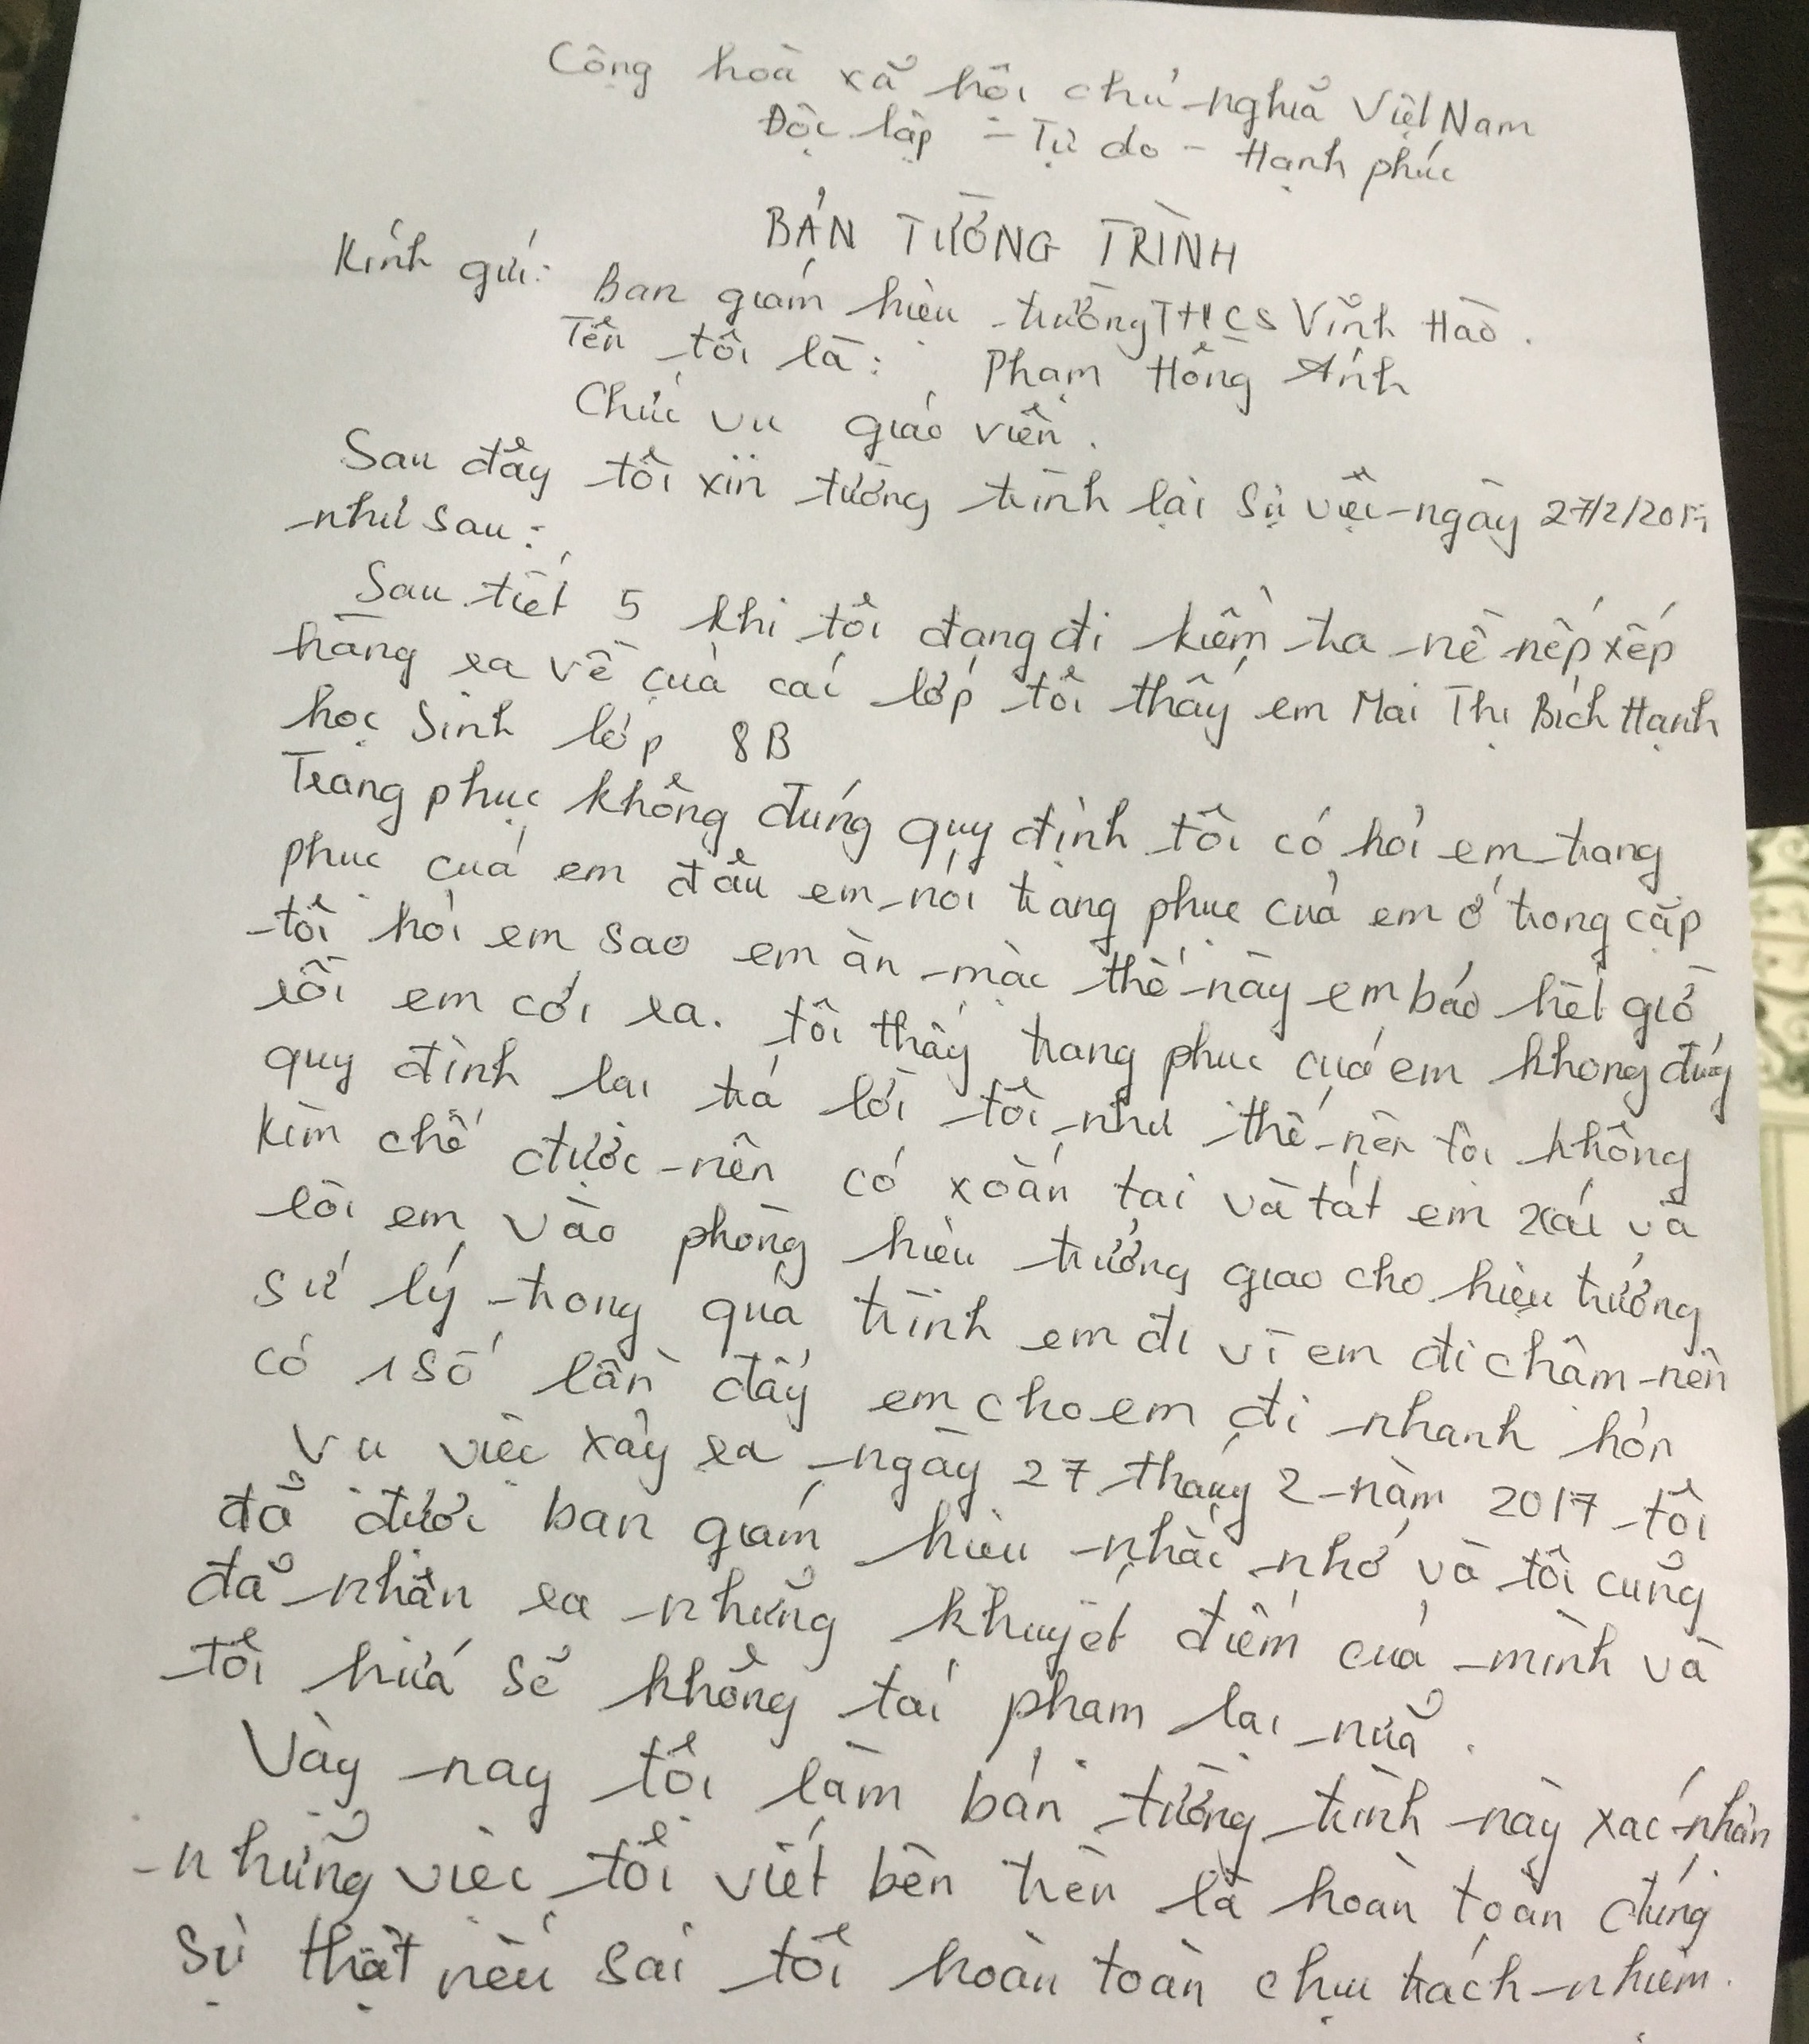 Cộng hoà xã hội chủ nghĩa Việt Nam
Độc lập - Tự do - Hạnh phúc
BẢN TƯỜNG TRÌNH
Kính gửi: Ban giám hiệu trường THCS Vĩnh Hào.
Tên tôi là: Phạm Hồng Ánh
Chức vụ giáo viên.
Sau đây tôi xin tường trình lại sự việc ngày 27/2/2017
như sau:
Sau tiết 5 khi tôi đang đi kiểm tra nề nếp xếp
hàng ra về của các lớp tôi thấy em Mai Thị Bích Hạnh
học sinh lớp 8B
Trang phục không đúng quy định tôi có hỏi em trang
phục của em đâu em nói trang phục của em ở trong cặp
tôi hỏi em sao em ăn mặc thế này em báo hết giờ
rồi em cởi ra. tôi thấy trang phục của em không đúng
quy định lại trả lời tôi như thế nên tôi không
kìm chế được nên có xoắn tai và tát em 2 cái và
lôi em vào phòng hiệu trưởng giao cho hiệu trưởng
sử lý trong quá trình em đi vì em đi chậm nên
có 1 số lần đẩy em cho em đi nhanh hơn
Vụ việc xảy ra ngày 27 tháng 2 năm 2017 tôi
đã được ban giám hiệu nhắc nhở và tôi cũng
đã nhận ra những khuyết điểm của mình và
tôi hứa sẽ không tái phạm lại nữa.
Vậy nay tôi làm bản tường trình này xác nhận
những việc tôi viết bên trên là hoàn toàn đúng
sự thật nếu sai tôi hoàn toàn chịu trách nhiệm.